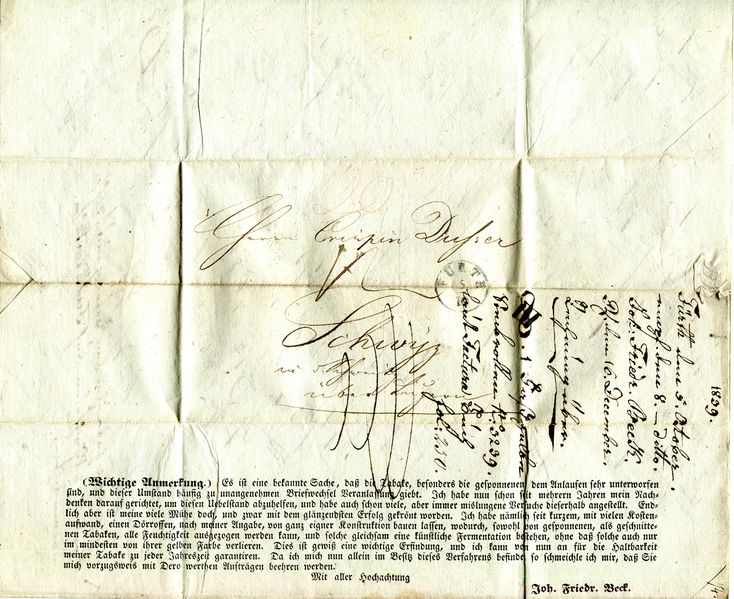 Herrn Crispin Dusser
FÜRTH
Schwyz
1839.
Fürth dem 5. October
dem 8. ditto.
Joh: Friedr Beck.
10. December.
No. 3239.
laut Factura Buch
fol: 250.
(Wichtige Anmerkung.) Es ist eine bekannte Sache, daß die Tabake, besonders die gesponnenen, dem Anlaufen sehr unterworfen
sind, und dieser Umstand häufig zu unangenehmen Briefwechsel Veranlassung giebt. Ich habe nun schon seit mehrern Jahren mein Nach-
denken darauf gerichtet, um diesen Uebelstand abzuhelfen, und habe auch schon viele, aber immer mislungene Versuche dieserhalb angestellt. End-
lich aber ist meine viele Mühe doch, und zwar mit dem glänzendsten Erfolg gekrönt worden. Ich habe nämlich seit kurzem, mit vielen Kosten-
aufwand, einen Dörroffen, nach meiner Angabe, von ganz eigner Konstruktion bauen lassen, wodurch, sowohl von gesponnenen, als geschnitte-
nen Tabaken, alle Feuchtigkeit ausgezogen werden kann, und solche gleichsam eine künstliche Fermentation bestehen, ohne daß solche auch nur
im mindesten von ihrer gelben Farbe verlieren. Dies ist gewiß eine wichtige Erfindung, und ich kann von nun an für die Haltbarkeit
meiner Tabake zu jeder Jahreszeit garantiren. Da ich mich nun allein im Besitz dieses Verfahrens befinde, so schmeichle ich mir, daß Sie
mich vorzugsweis mit Dero werthen Aufträgen beehren werden.
Mit aller Hochachtung
Joh. Friedr. Beck.